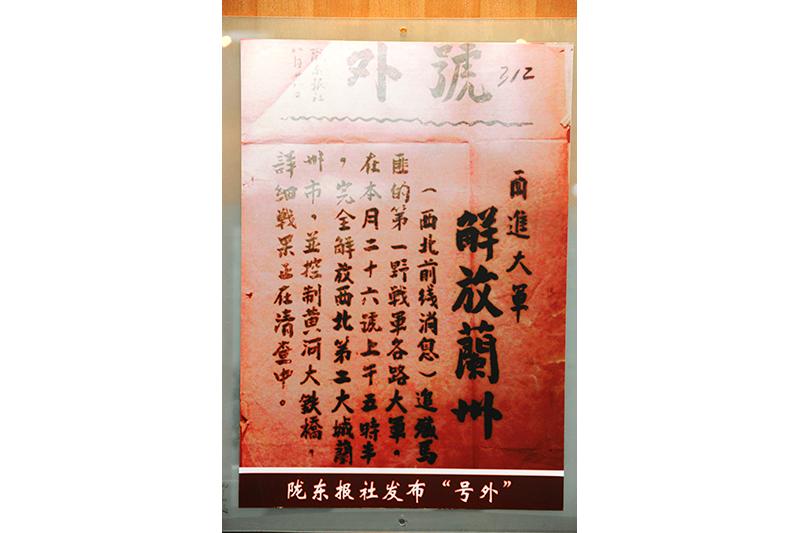 號外
312
西進大軍
解放蘭州
（西北前线消息）追殲馬
匪的第一野戰軍各路大軍。
在本月二十六號上午五時半
，完全解放西北第二大城蘭
州市，並控制黄河大鉄橋，
詳細戰果正在清查中。
陇东报社发布“号外”